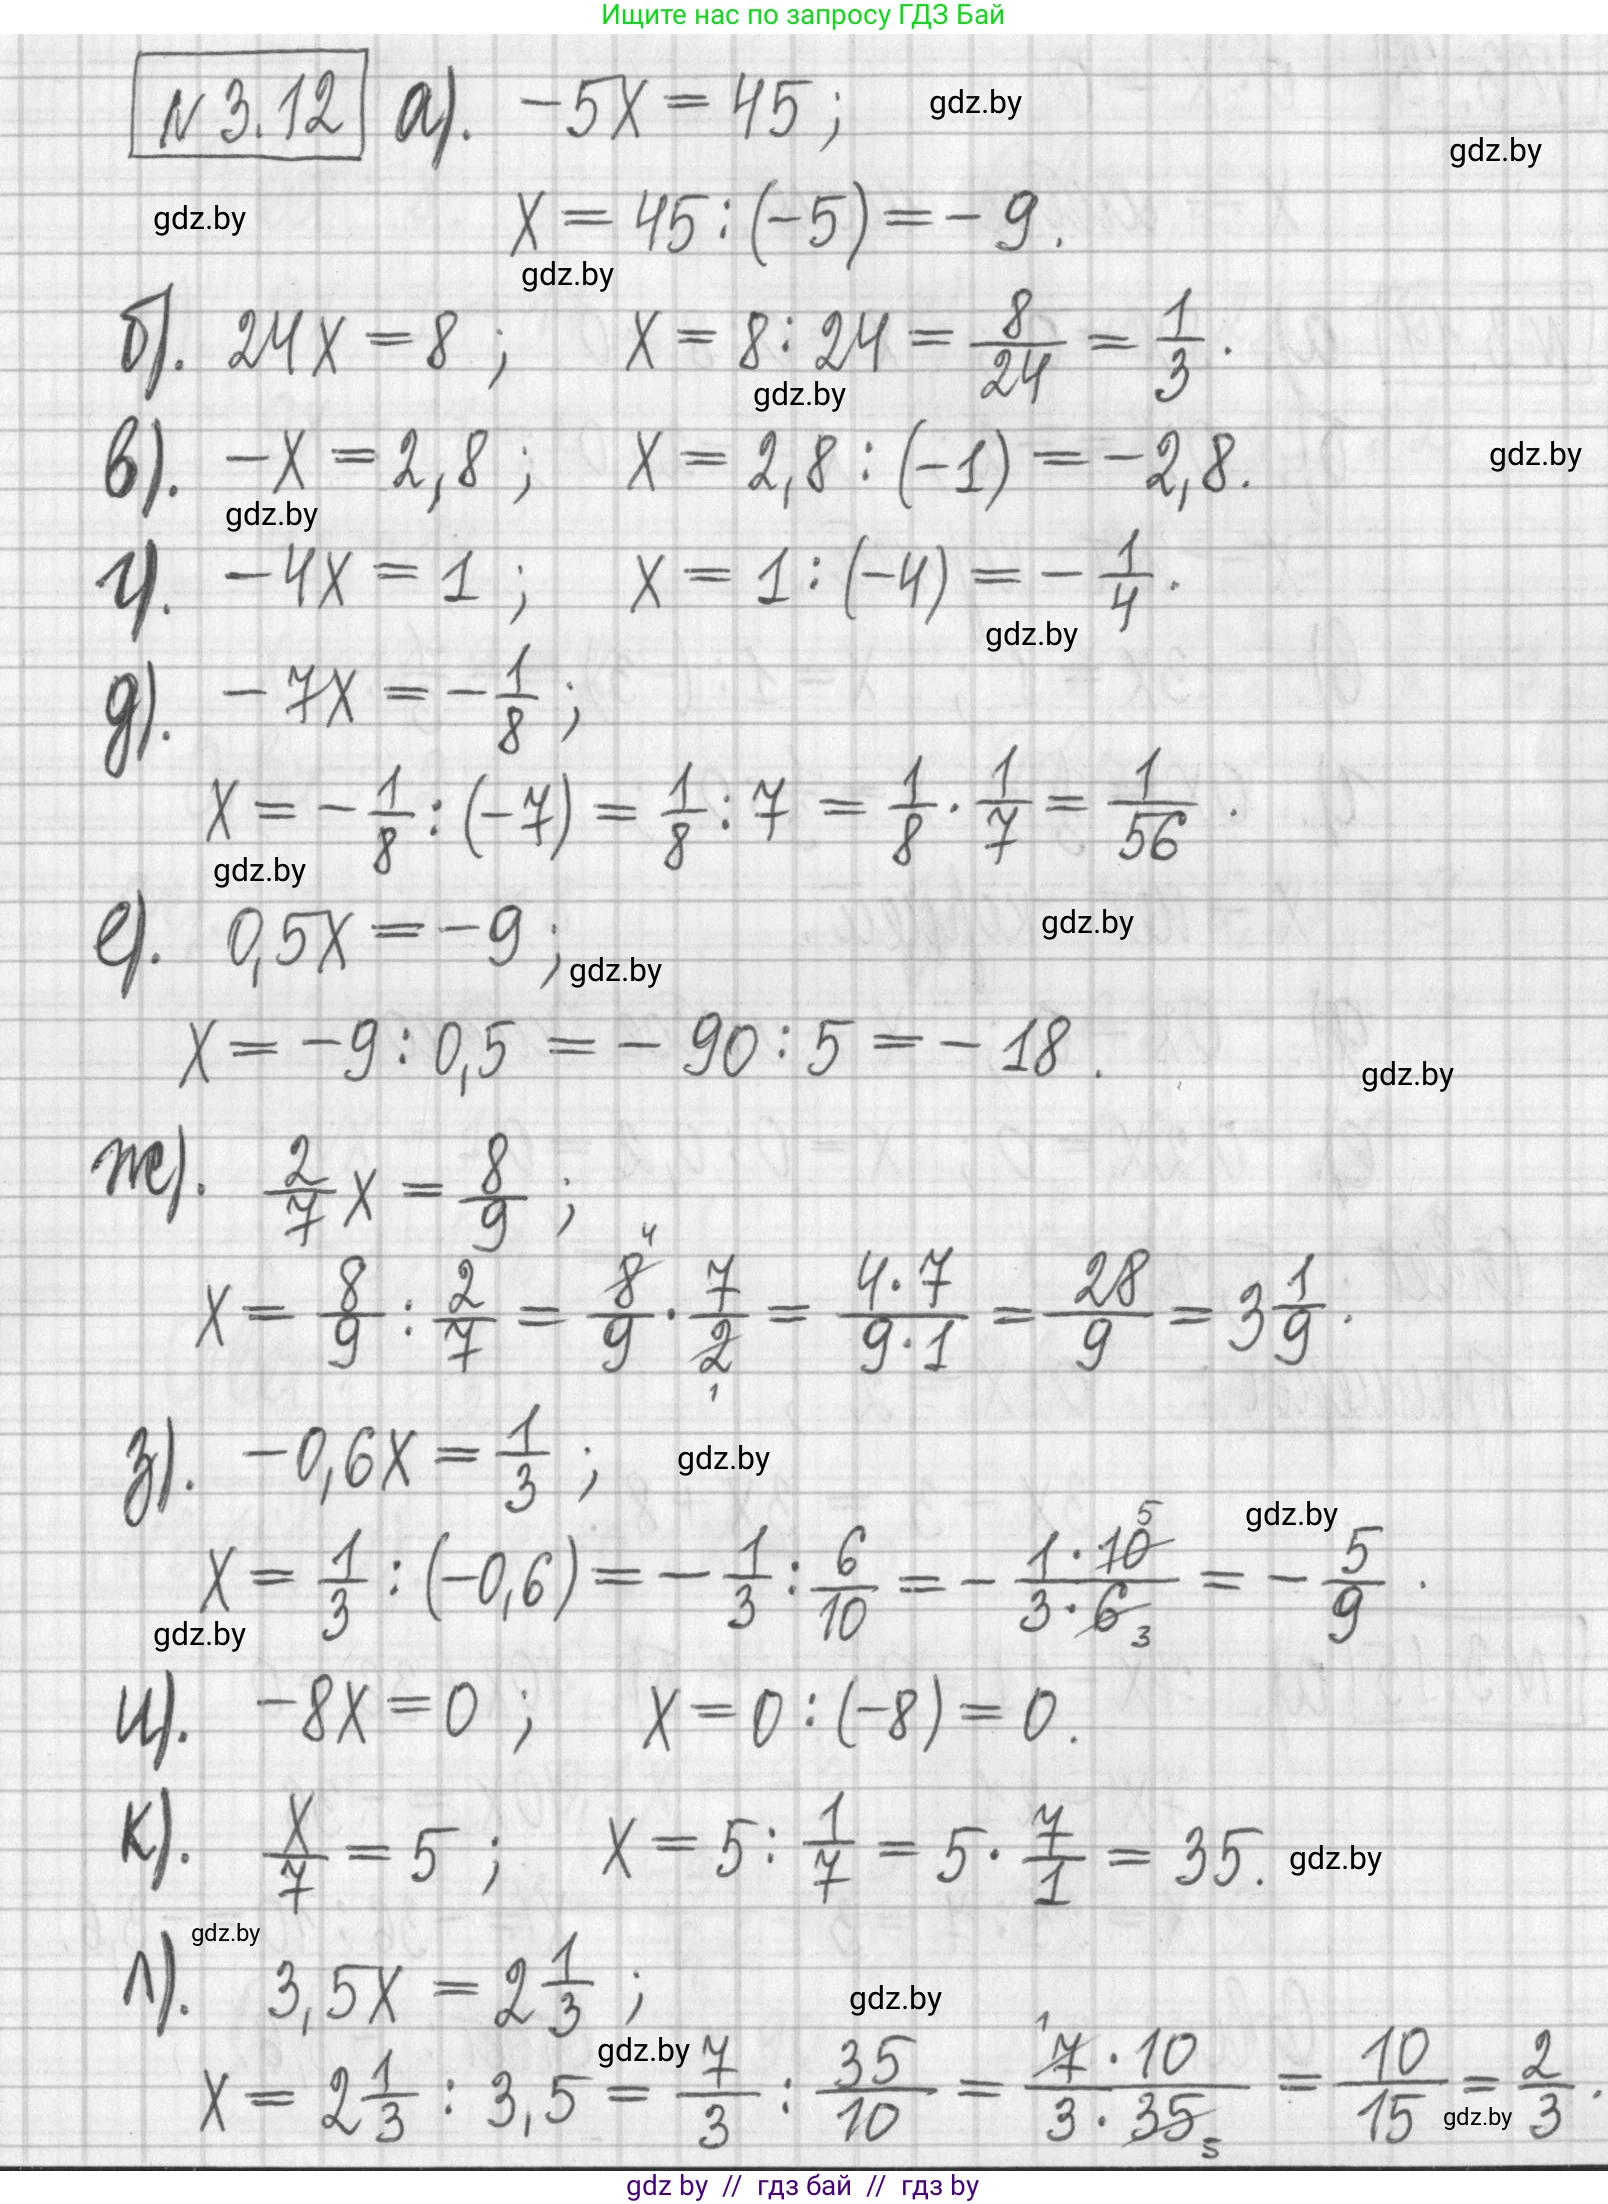 Ищите нас по запросу ГДЗ Бай
N 3.12 а). -5x = 45 ; gdz.by
gdz.by
gdz.by x = 45 : (-5) = -9.
gdz.by
б). 24x = 8 ; x = 8 : 24 = 8/24 = 1/3.
gdz.by
в). -x = 2,8 ; x = 2,8 : (-1) = -2,8. gdz.by
gdz.by
г). -4x = 1 ; x = 1 : (-4) = -1/4.
gdz.by
д). -7x = -1/8 ;
x = -1/8 : (-7) = 1/8 : 7 = 1/8 · 1/7 = 1/56.
gdz.by
е). 0,5x = -9 ; gdz.by
gdz.by
x = -9 : 0,5 = -90 : 5 = -18.
gdz.by
ж). 2/7 x = 8/9 ;
x = 8/9 : 2/7 = 8/9 · 7/2 = 4·7/9·1 = 28/9 = 3 1/9.
з). -0,6x = 1/3 ; gdz.by
gdz.by
x = 1/3 : (-0,6) = -1/3 : 6/10 = -1·10/3·6 = -5/9.
gdz.by
и). -8x = 0 ; x = 0 : (-8) = 0.
к). x/7 = 5 ; x = 5 : 1/7 = 5 · 7/1 = 35. gdz.by
gdz.by
л). 3,5x = 2 1/3 ; gdz.by
gdz.by
x = 2 1/3 : 3,5 = 7/3 : 35/10 = 7·10/3·35 = 10/15 = 2/3.
gdz.by
gdz by // гдз бай // гдз by